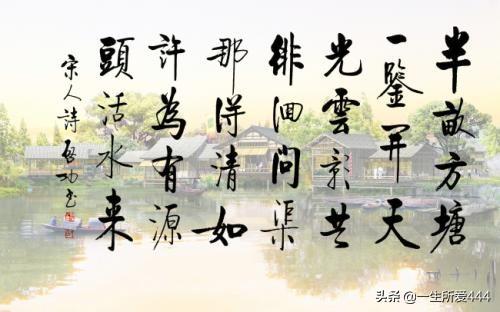 半畝方塘
一鑒开天
光雲影共
徘徊問渠
那得清如
許為有源
頭活水来
宋人詩啓功书
头条 @一生所爱444